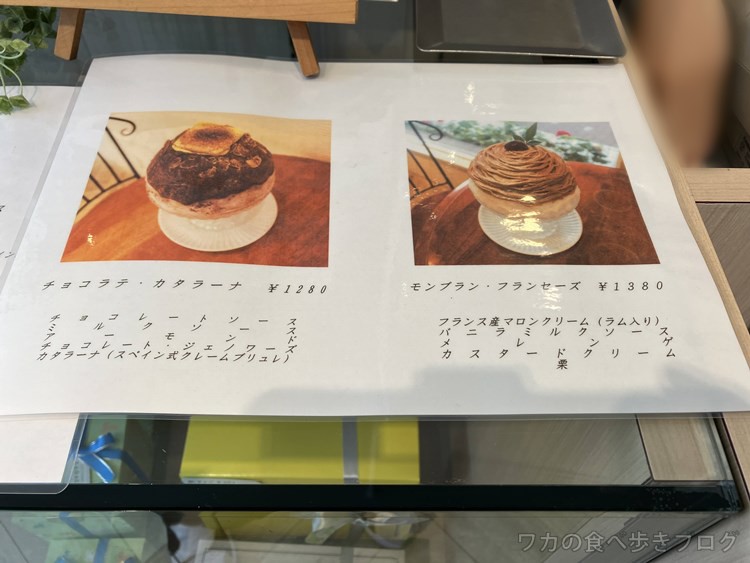 チョコラテ・カタラーナ ￥1280
チョコレートソース
ミルクソース
アーモンド
チョコレート・ジェノワーズ
カタラーナ(スペイン式クレームブリュレ)
モンブラン・フランセーズ ￥1380
フランス産マロンクリーム(ラム入り)
バニラミルクソース
メレンゲ
カスタードクリーム
栗
ワカの食べ歩きブログ